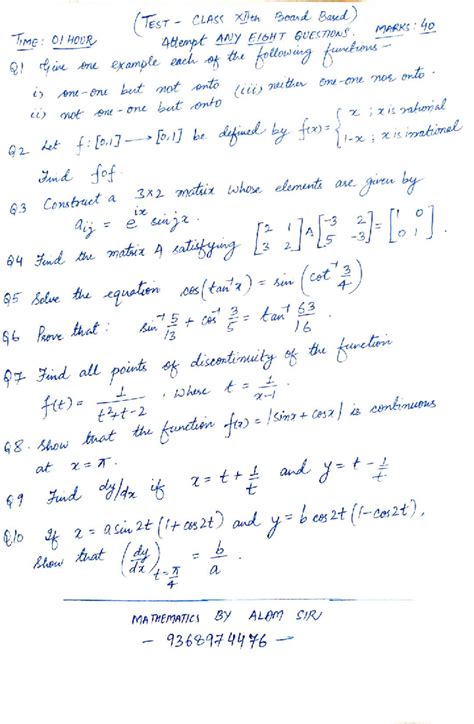 (TEST - CLASS XIIth Board Based)
TIME: 01 HOUR Attempt ANY EIGHT QUESTIONS. MARKS: 40
Q1 Give one example each of the following functions -
i) one-one but not onto (iii) neither one-one nor onto.
ii) not one-one but onto
Q2 Let f:[0,1] → [0,1] be defined by f(x) = { x ; x is rational
1-x ; x is irrational
Find fof.
Q3 Construct a 3x2 matrix whose elements are given by
a_ij = e^ix sin jx.
Q4 Find the matrix A satisfying [2 1; 3 2] A [-3 2; 5 -3] = [1 0; 0 1].
Q5 Solve the equation cos(tan⁻¹x) = sin(cot⁻¹ 3/4)
Q6 Prove that: sin⁻¹ 5/13 + cos⁻¹ 3/5 = tan⁻¹ 63/16.
Q7 Find all points of discontinuity of the function
f(t) = 1/(t²+t-2), where t = 1/(x-1).
Q8. Show that the function f(x) = |sinx + cosx| is continuous
at x = π.
Q9 Find dy/dx if x = t + 1/t and y = t - 1/t
Q10 If x = a sin2t (1+cos2t) and y = b cos2t (1-cos2t),
Show that (dy/dx)_t=π/4 = b/a.
MATHEMATICS BY ALAM SIR
- 9368974476 -